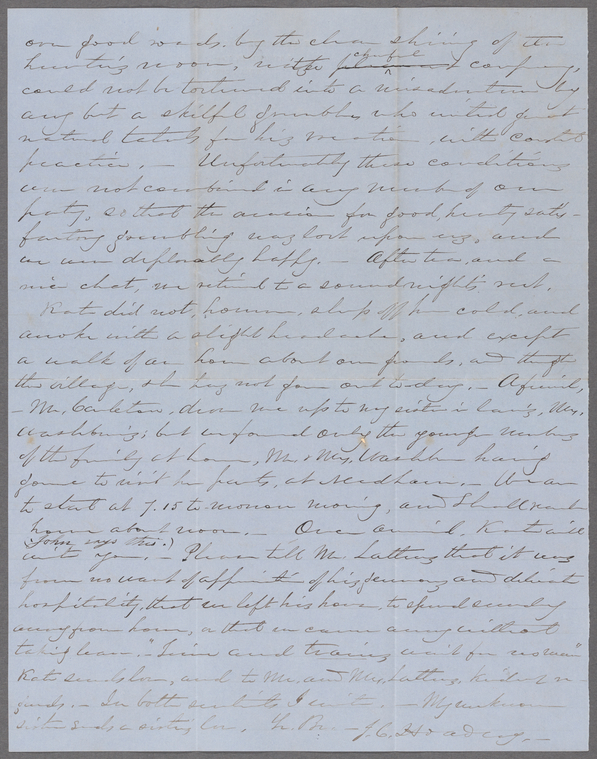 our good roads, by the clear shining of the
hunting moon, with cheerful company,
could not be tortured into a misadventure by
any but a skilful grumbler who united great
natural talents for his vocation, with constant
practice. — Unfortunately these conditions
were not combined in any member of our
party, so that the occasion for good, hearty satis-
factory grumbling was lost upon us, and
we were deplorably happy. — After tea, and a
nice chat, we retired to a sound night's rest.
Kate did not, however, sleep off her cold, and
awoke with a slight headache, and except
a walk of an hour about our grounds, and through
the village, she has not gone out to-day. — A friend,
— Mr. Carleton, drove me up to my sister in law's, Mrs.
Washburn's; but we found only the younger members
of the family at home, Mr. & Mrs. Washburn having
gone to visit her parents, at Needham. — We are
to start at 7.15 to-morrow morning, and shall reach
home about noon. — Once arrived, Kate will
(John says this.)
write you. — Please tell Mr. Lathrop that it was
from no want of of his sermons and delicate
hospitality, that we left his house, to spend sunday
away from home, or that we came away without
taking leave. "Time and trains wait for no man"
Kate sends love, and to Mr. and Mrs. Lathrop, kindest re-
gards. — In both sentiments I unite. — My unknown
sister sends a sister's love. Yr. Bro. — J. C. Hoadley. —